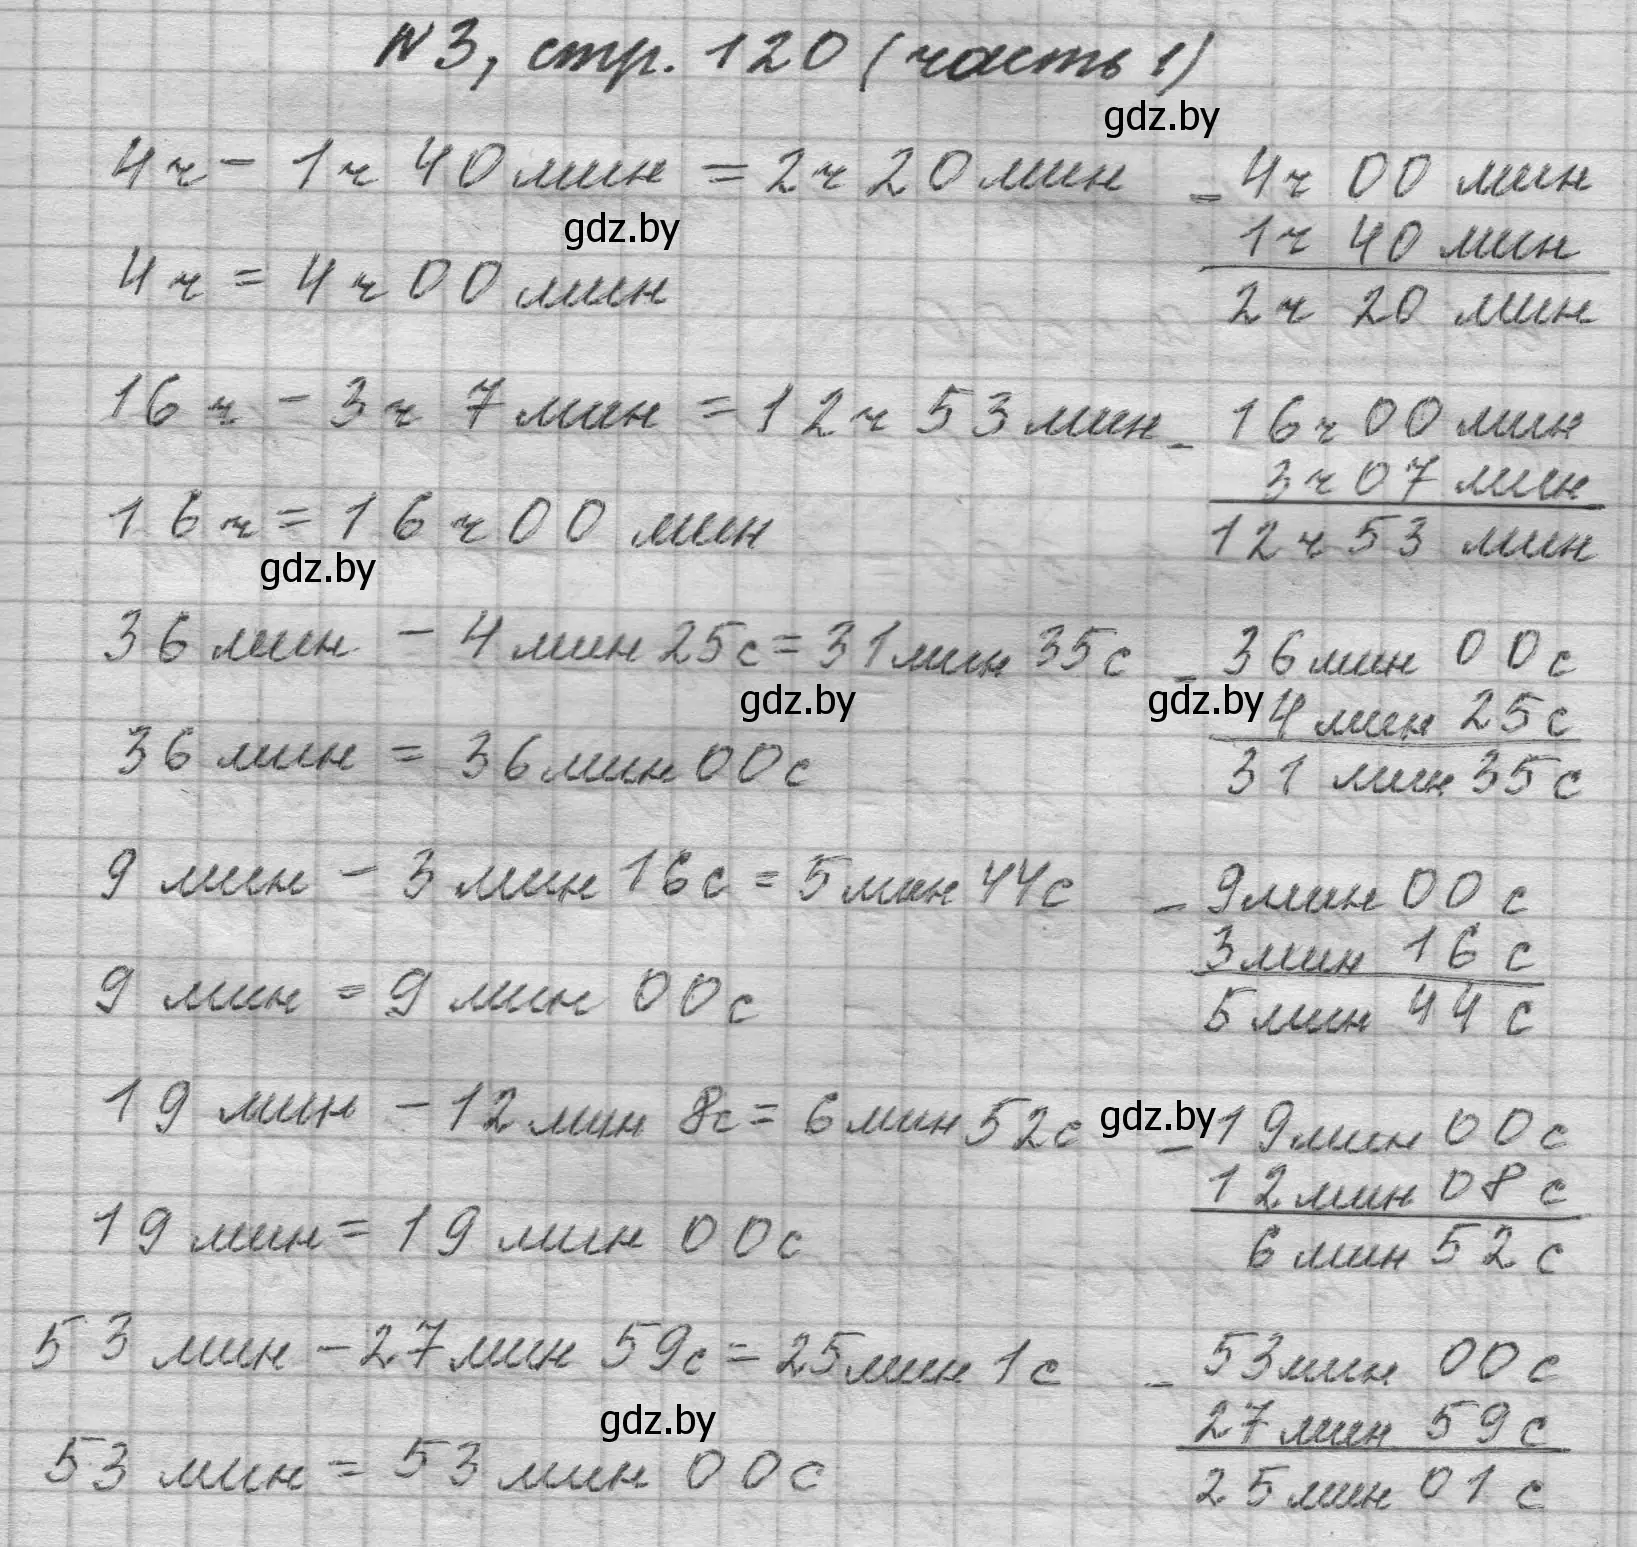 №3, стр. 120 (часть 1)
gdz.by
4ч - 1ч 40 мин = 2ч 20 мин
- 4ч 00 мин
1ч 40 мин
2ч 20 мин
gdz.by
4ч = 4ч 00 мин
16ч - 3ч 7 мин = 12ч 53 мин
- 16ч 00 мин
3ч 07 мин
12ч 53 мин
16ч = 16ч 00 мин
gdz.by
36 мин - 4 мин 25с = 31 мин 35с
- 36 мин 00с
4 мин 25с
31 мин 35с
gdz.by
gdz.by
36 мин = 36 мин 00с
9 мин - 3 мин 16с = 5 мин 44с
- 9 мин 00 с
3 мин 16 с
5 мин 44 с
9 мин = 9 мин 00с
19 мин - 12 мин 8с = 6 мин 52с
gdz.by
- 19 мин 00с
12 мин 08 с
6 мин 52 с
19 мин = 19 мин 00с
53 мин - 27 мин 59с = 25 мин 1с
- 53 мин 00с
27 мин 59с
25 мин 01 с
gdz.by
53 мин = 53 мин 00с